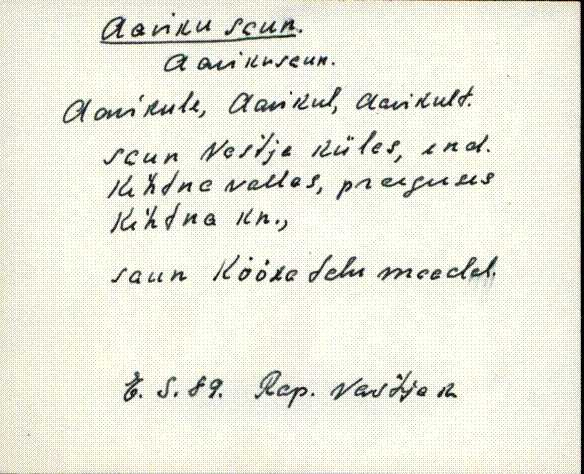 Aaviku saun.
Aavikusaun.
Aavikule, Aavikul, Aavikult.
saun Vastja külas, end.
Kehtna vallas, praeguses
Kehtna kn.,
saun talu maadel.
E. S. 89. Rap. Vastja k